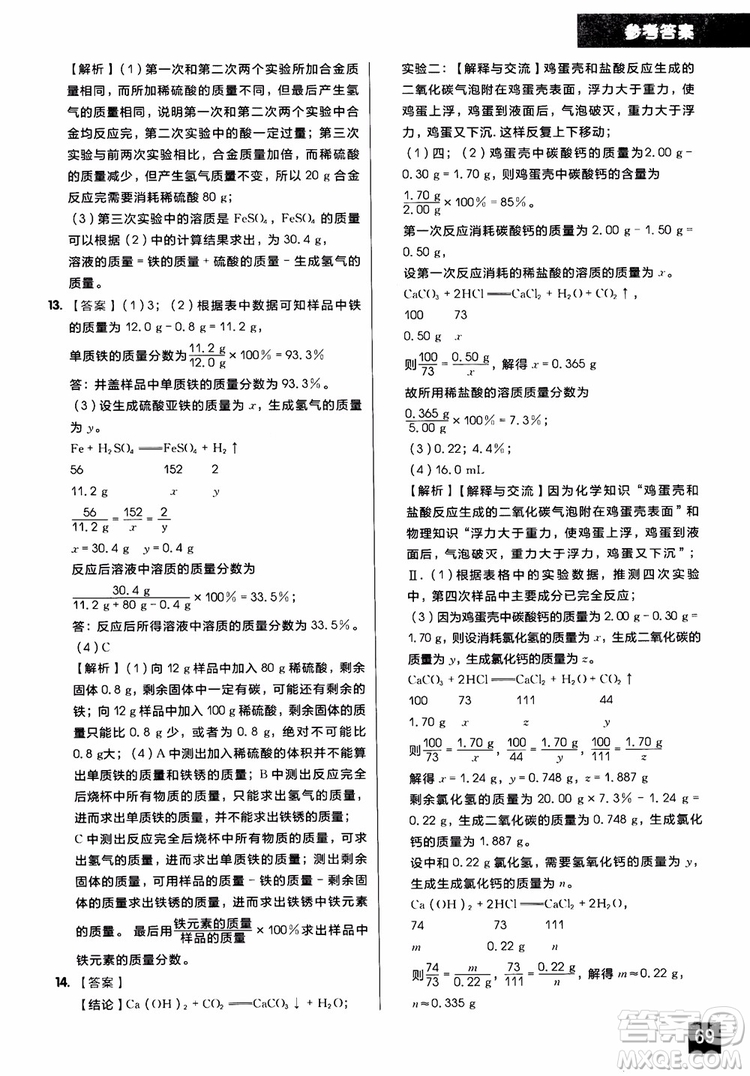 参考答案
【解析】(1)第一次和第二次两个实验所加合金质
量相同,而所加稀硫酸的质量不同,但最后产生氢
气的质量相同,说明第一次和第二次两个实验中合
金均反应完,第二次实验中的酸一定过量;第三次
实验与前两次实验相比,合金质量加倍,而稀硫酸
的质量减少,但产生氢气质量不变,所以 20 g 合金
反应完需要消耗稀硫酸 80 g;
(3)第三次实验中的溶质是 FeSO₄,FeSO₄ 的质量
可以根据(2)中的计算结果求出,为 30.4 g,
溶液的质量=铁的质量+硫酸的质量-生成氢气的
质量。
13. 【答案】(1)3;(2)根据表中数据可知样品中铁
的质量为 12.0 g-0.8 g=11.2 g,
单质铁的质量分数为 11.2 g/12.0 g×100%=93.3%
答:井盖样品中单质铁的质量分数为 93.3%。
(3)设生成硫酸亚铁的质量为 x,生成氢气的质量
为 y。
Fe+H₂SO₄══FeSO₄+H₂↑
56 152 2
11.2 g x y
56/11.2 g=152/x=2/y
x=30.4 g y=0.4 g
反应后溶液中溶质的质量分数为
30.4 g/(11.2 g+80 g-0.4 g)×100%=33.5%;
答:反应后所得溶液中溶质的质量分数为 33.5%。
(4)C
【解析】(1)向 12 g 样品中加入 80 g 稀硫酸,剩余
固体 0.8 g,剩余固体中一定有碳,可能还有剩余的
铁;向 12 g 样品中加入 100 g 稀硫酸,剩余固体质
量可能比 0.8 g 少,或是 0.8 g,绝对不可能比
0.8 g大;(4)A 中测出加入稀硫酸的体积并不能算
出单质铁的质量和铁锈的质量;B 中测出反应完全
后烧杯中所有物质的质量,只能求出氢气的质量,
进一步求出单质铁的质量,并不能求出铁锈的质量;
C 中测出反应完全后烧杯中所有物质的质量,可求
出氢气的质量,进一步求出单质铁的质量;测出剩余
固体的质量,可用样品的质量-单质铁的质量-剩余
固体的质量求出铁锈的质量,进而求出铁锈中铁元素
的质量。 最后用铁元素的质量/样品的质量×100%求出样品中
铁元素的质量分数。
14. 【答案】
【结论】Ca(OH)₂+CO₂══CaCO₃↓+H₂O;
实验二:【解释与交流】鸡蛋壳和盐酸反应生成的
二氧化碳气泡附在鸡蛋壳表面,浮力大于重力,鸡
蛋上浮,鸡蛋到液面后,气泡破灭,重力大于浮
力,鸡蛋又下沉.这样反复上下移动;
(1)四;(2)鸡蛋壳中碳酸钙的质量为2.00 g-
0.30 g=1.70 g,则鸡蛋壳中碳酸钙的含量为
1.70 g/2.00 g×100%=85%。
第一次反应消耗碳酸钙的质量为 2.00 g-1.50 g=
0.50 g,
设第一次反应消耗的稀盐酸的溶质的质量为 x。
CaCO₃+2HCl══CaCl₂+H₂O+CO₂↑,
100 73
0.50 g x
则100/73=0.50 g/x,解得 x=0.365 g
故所用稀盐酸的溶质质量分数为
0.365 g/5.00 g×100%=7.3%;
(3)0.22;4.4%;
(4)16.0 mL
【解析】【解释与交流】因为化学知识“鸡蛋壳和
盐酸反应生成的二氧化碳气泡附在鸡蛋壳表面”和
物理知识“浮力大于重力,使鸡蛋上浮,鸡蛋到液
面后,气泡破灭,重力大于浮力,鸡蛋又下沉”;
Ⅱ.(1)根据表格中的实验数据,推测四次实验
中,第四次样品中主要成分已完全反应;
(3)因为鸡蛋壳中碳酸钙的质量为 2.00 g-0.30 g=
1.70 g,设反应氯化氢的质量为 x,生成二氧化碳的
质量为 y,生成氯化钙的质量为z。
CaCO₃+2HCl══CaCl₂+H₂O+CO₂↑,
100 73 111 44
1.70 g x z y
则100/73=1.70 g/x,100/44=1.70 g/y,100/111=1.70 g/z
解得 x=1.24 g,y=0.748 g,z=1.887 g
剩余氯化氢的质量为 20.00 g×7.3%-1.24 g=
0.22 g,生成二氧化碳的质量为0.748 g,生成氯化
钙的质量为1.89 g。
设中和 0.22 g 氯化氢,需要氢氧化钙的质量为 y,
生成生成氯化钙的质量为 n。
Ca(OH)₂+2HCl══CaCl₂+2H₂O
74 73 111
m 0.22 g n
则74/73=m/0.22 g,73/111=0.22 g/n,解得 m≈0.22 g,
n≈0.335 g
69
答案圈
MXQE.COM